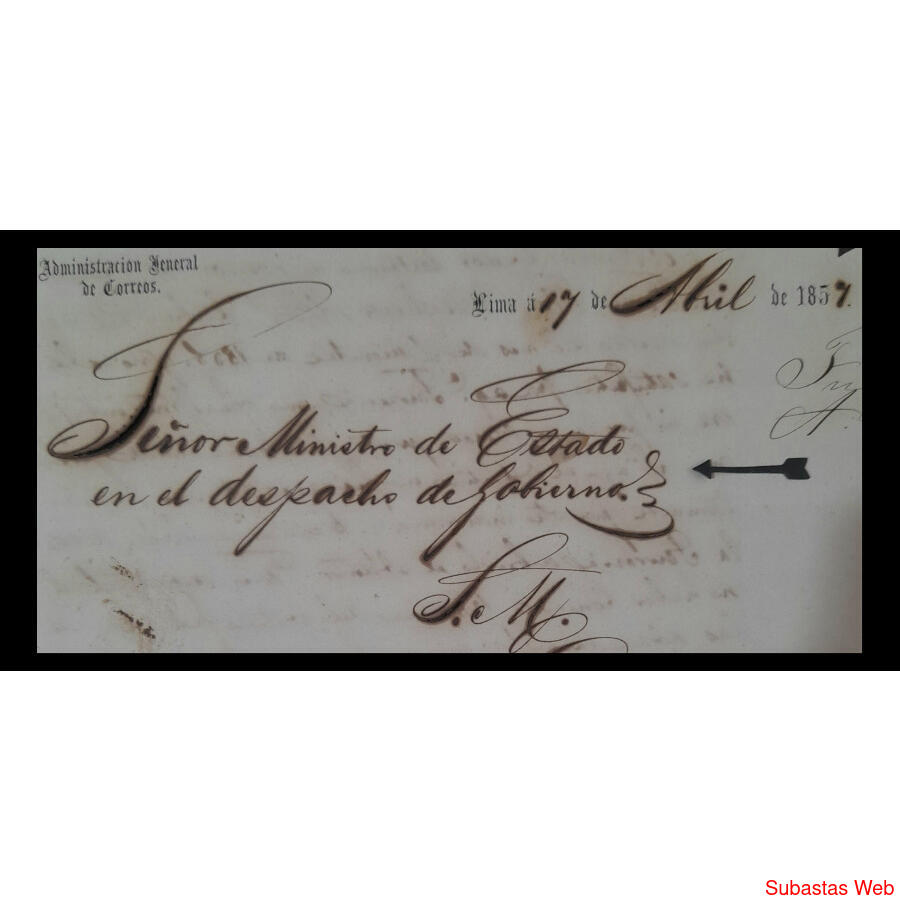 Administracion Jeneral
de Correos.
Lima á 17 de Abril de 1857.
Señor Ministro de Estado
en el despacho de Gobierno.
S. M.
Subastas Web